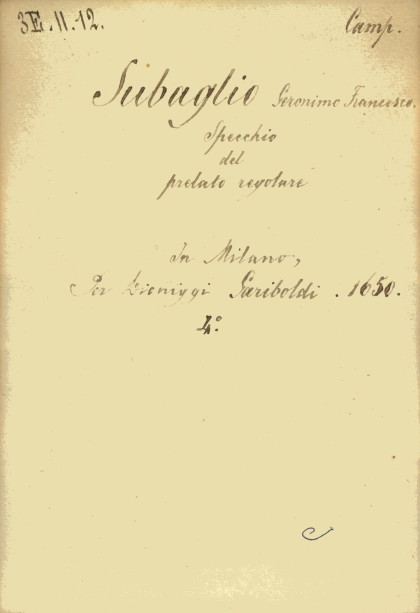 3E.11.12.
Camp.
Subaglio Geronimo Francesco.
Specchio
del
prelato regolare
In Milano,
Per Dioniggi Gariboldi. 1650.
4.°